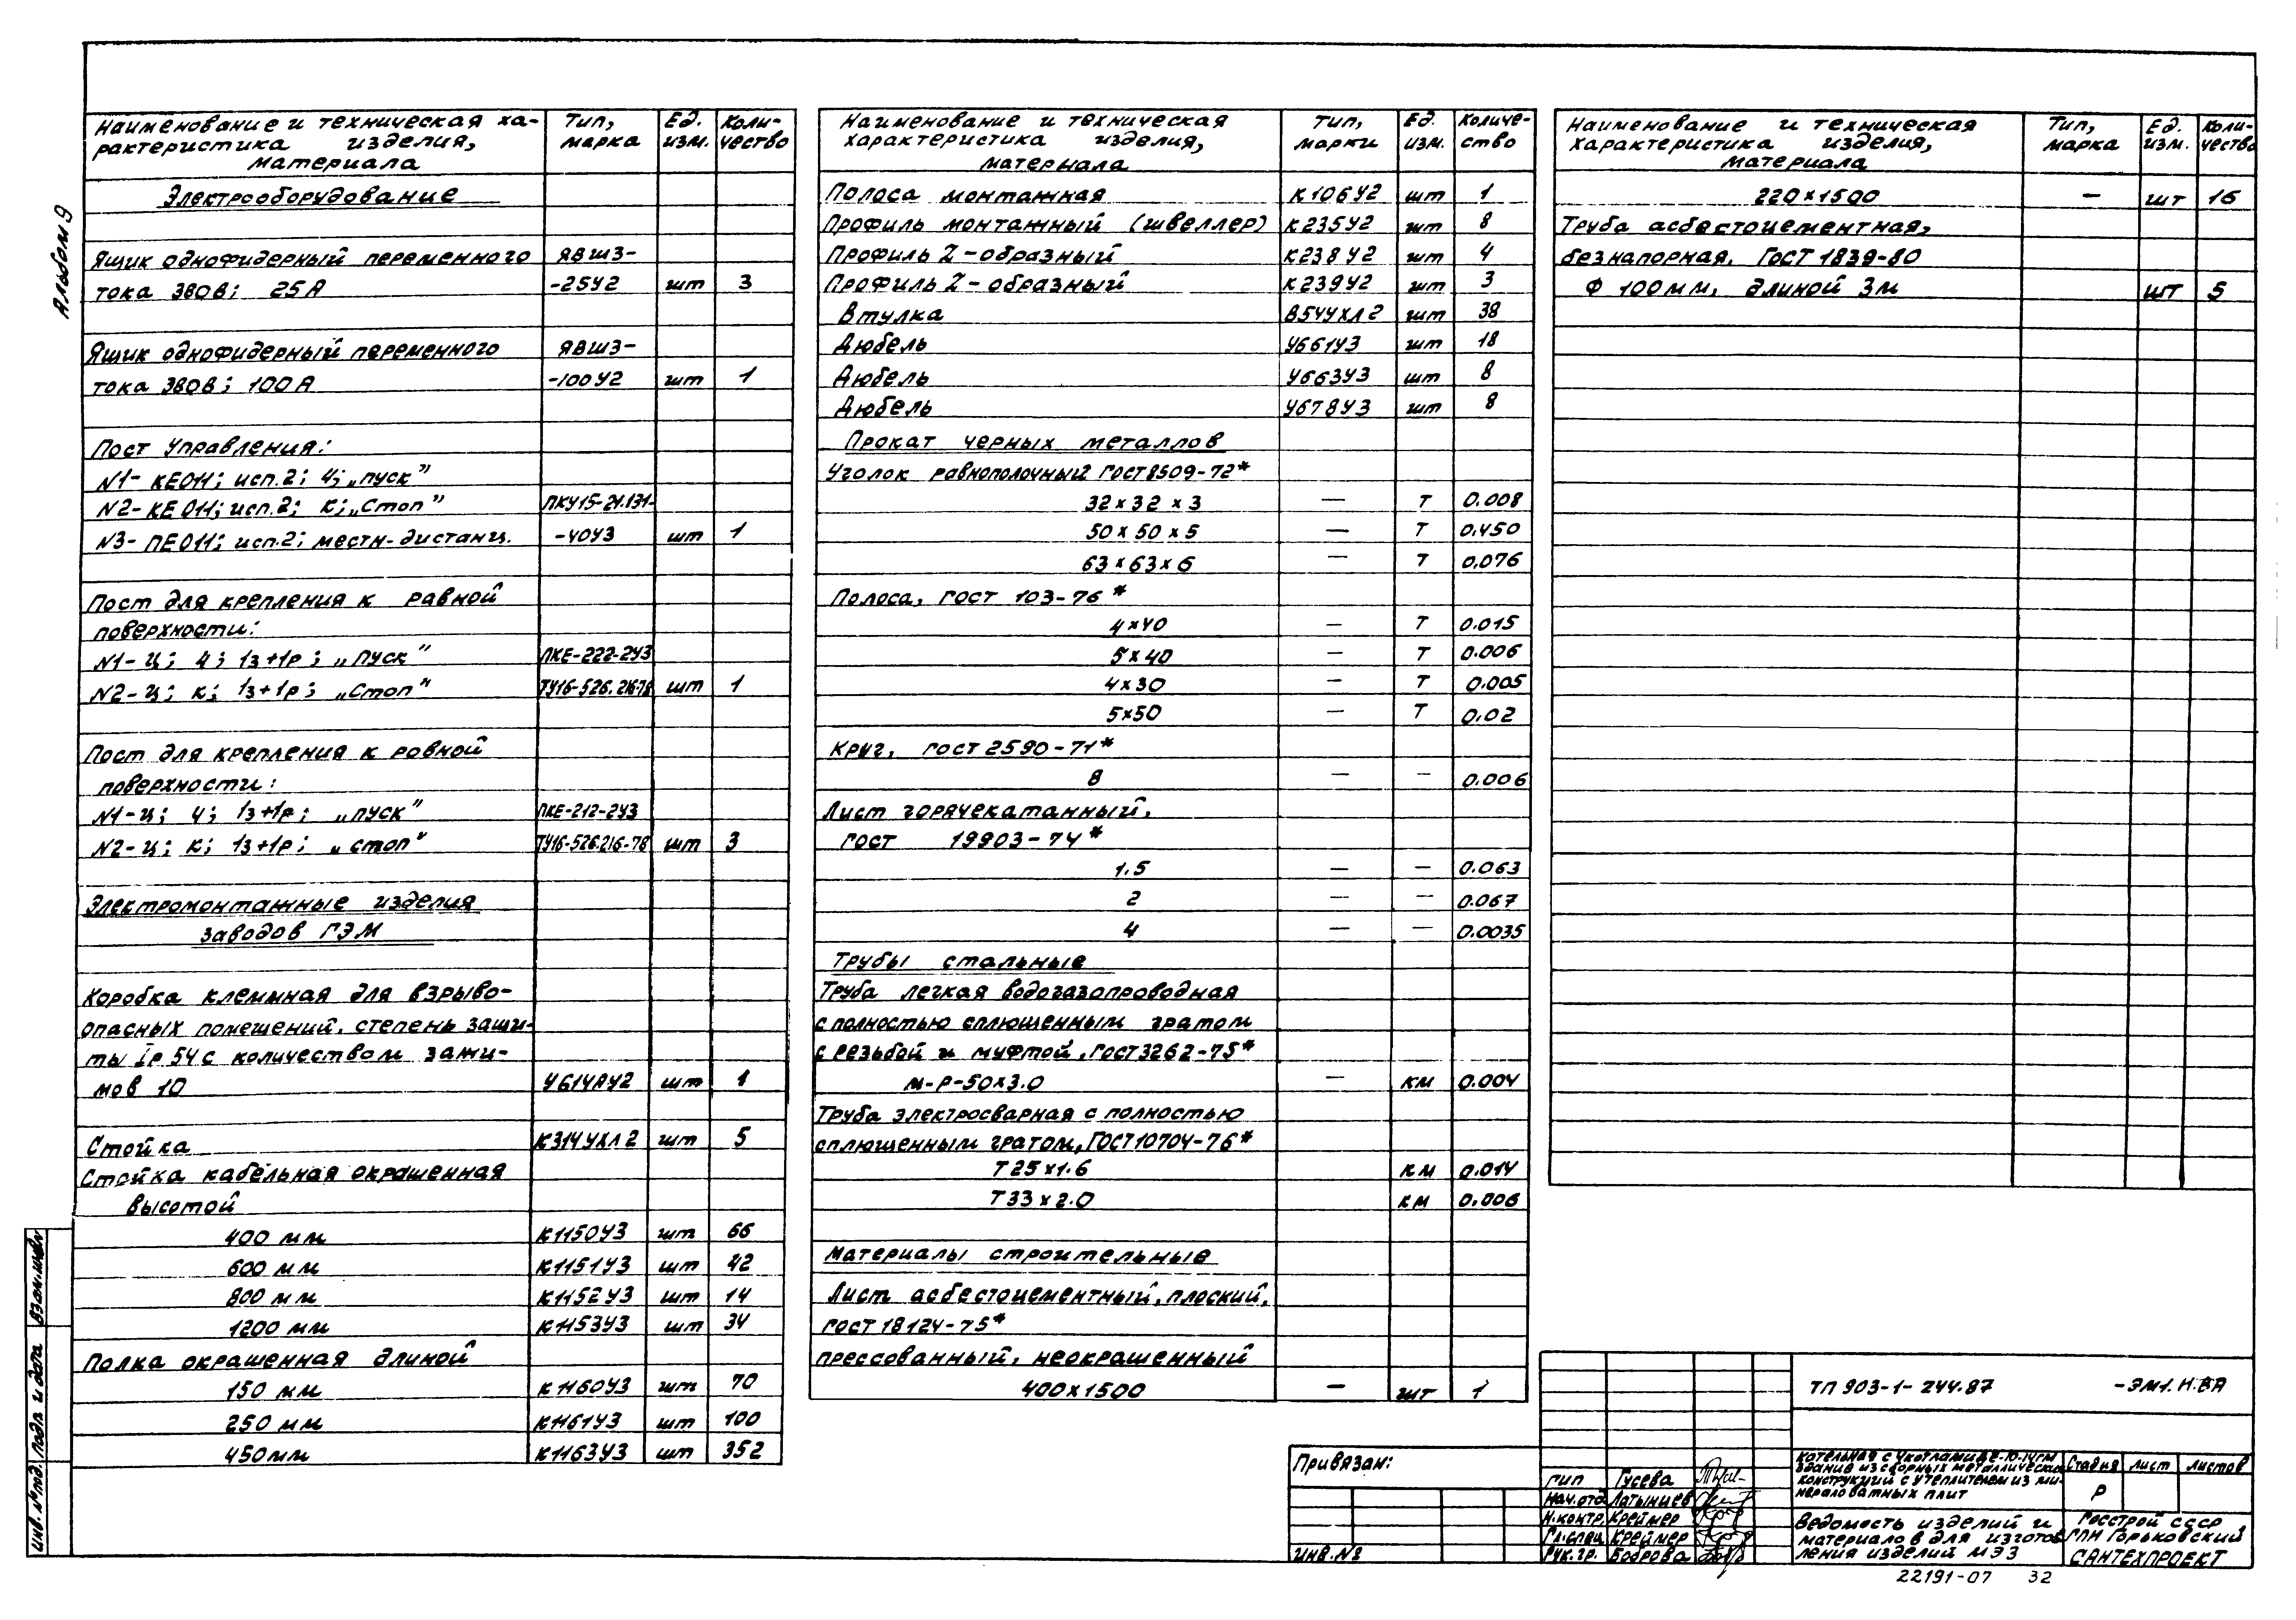 Альбом 9
Наименование и техническая ха- Тип, Ед. Коли-
рактеристика изделия, марка изм. чество
материала
Электрооборудование
Ящик однофидерный переменного ЯВШЗ-
тока 380 В; 25 А -25У2 шт 3
Ящик однофидерный переменного ЯВШЗ-
тока 380 В; 100 А -100У2 шт 1
Пост управления:
N1- КЕ011; исп. 2; ч; „пуск"
N2- КЕ011; исп. 2; к; „Стоп" ПКУ15-21.131-
N3- ПЕ011; исп. 2; местн.-дистанц. -40У3 шт 1
Пост для крепления к равной
поверхности:
N1- ц; ч; 1з+1р; „пуск" ПКЕ-222-2У3
N2- ц; к; 1з+1р; „Стоп" ТУ16-526.216-78 шт 1
Пост для крепления к ровной
поверхности:
N1- ц; ч; 1з+1р; „пуск" ПКЕ-212-2У3
N2- ц; к; 1з+1р; „стоп" ТУ16-526.216-78 шт 3
Электромонтажные изделия
заводов ГЭМ
Коробка клеммная для взрыво-
опасных помещений, степень защи-
ты Iр 54 с количеством зажи-
мов 10 У614АУ2 шт 1
Стойка К314УХЛ2 шт 5
Стойка кабельная окрашенная
высотой
400 мм К1150У3 шт 66
600 мм К1151У3 шт 42
800 мм К1152У3 шт 14
1200 мм К1153У3 шт 34
Полка окрашенная длиной
150 мм К1160У3 шт 70
250 мм К1161У3 шт 100
450 мм К1163У3 шт 352
Наименование и техническая Тип, Ед. Количе-
характеристика изделия, марки изм. ство
материала
Полоса монтажная К106У2 шт 1
Профиль монтажный (швеллер) К235У2 шт 8
Профиль Z-образный К238У2 шт 4
Профиль Z-образный К239У2 шт 3
Втулка В54УХЛ2 шт 38
Дюбель У661У3 шт 18
Дюбель У663У3 шт 8
Дюбель У678У3 шт 8
Прокат черных металлов
Уголок равнополочный ГОСТ 8509-72*
32 х 32 х 3 — Т 0.008
50 х 50 х 5 — Т 0.450
63 х 63 х 6 — Т 0.076
Полоса, ГОСТ 103-76*
4х40 — Т 0.015
5х40 — Т 0.006
4х30 — Т 0.005
5х50 — Т 0.02
Круг, ГОСТ 2590-71*
8 — — 0.006
Лист горячекатанный,
ГОСТ 19903-74*
1.5 — — 0.063
2 — — 0.067
4 — — 0.0035
Трубы стальные
Труба легкая водогазопроводная
с полностью сплющенным гратом
с резьбой и муфтой, ГОСТ 3262-75*
М-Р-50х3.0 — км 0.004
Труба электросварная с полностью
сплющенным гратом, ГОСТ 10704-76*
Т 25х1.6 км 0.014
Т 33х2.0 км 0.006
Материалы строительные
Лист асбестоцементный, плоский,
ГОСТ 18124-75*
прессованный, неокрашенный
400х1500 — шт 1
Наименование и техническая Тип, Ед. Коли-
характеристика изделия, марка изм. чество
материала
220х1500 — шт 16
Труба асбестоцементная,
безнапорная, ГОСТ 1839-80
Ф 100 мм, длиной 3м шт 5
Инв. № под. Подп. и дата Взам. инв. №
Привязан:
Инв. №
ТП 903-1-244.87 -ЭМ1.И.ВА
гип Гусева
Нач. отд Латынцев
Н. контр. Креймер
Гл. спец Креймер
Рук. гр. Боброва
Котельная с 4 котлами ДЕ-10-14ГМ
Здание из сборных металлических
конструкций с утеплителем из ми-
нераловатных плит
Стадия лист листов
Р
Ведомость изделий и
материалов для изготов-
ления изделий МЭЗ
Госстрой СССР
ГПИ Горьковский
САНТЕХПРОЕКТ
22191-07 32